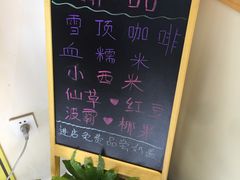 品
雪顶咖啡
血糯米
小西米
仙草♥红豆
菠萝♥椰果
进店免费品尝奶盖